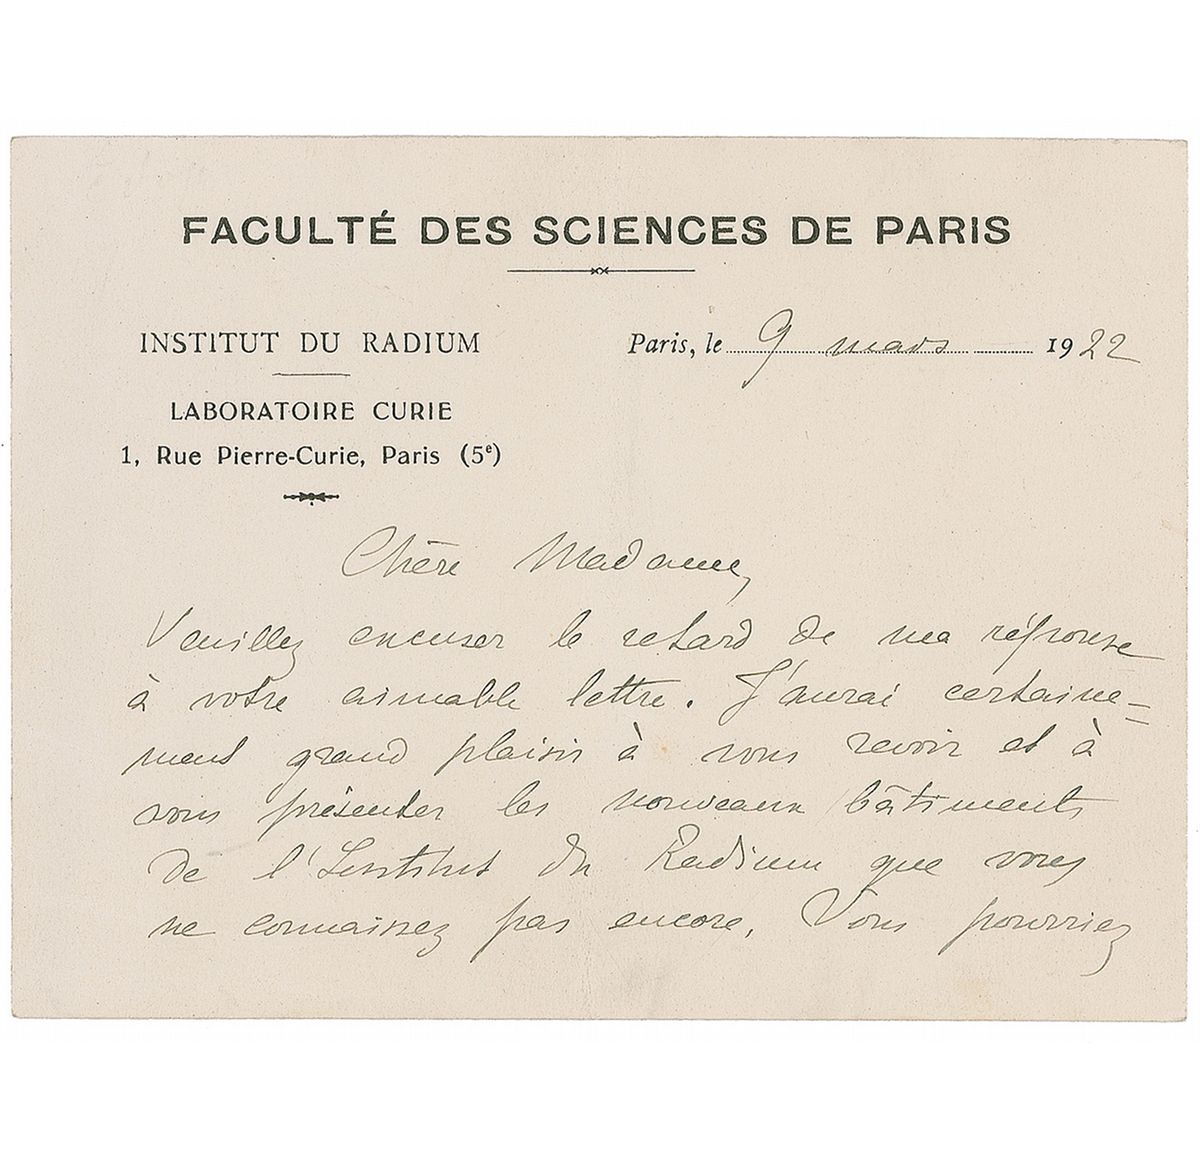 FACULTÉ DES SCIENCES DE PARIS
INSTITUT DU RADIUM
LABORATOIRE CURIE
1, Rue Pierre-Curie, Paris (5e)
Paris, le 9 mars 1922
Chère Madame,
Veuillez excuser le retard de ma réponse
à votre aimable lettre. J'aurai certaine=
ment grand plaisir à vous revoir et à
vous présenter les nouveaux bâtiments
de l'Institut du Radium que vous
ne connaissez pas encore. Vous pourriez